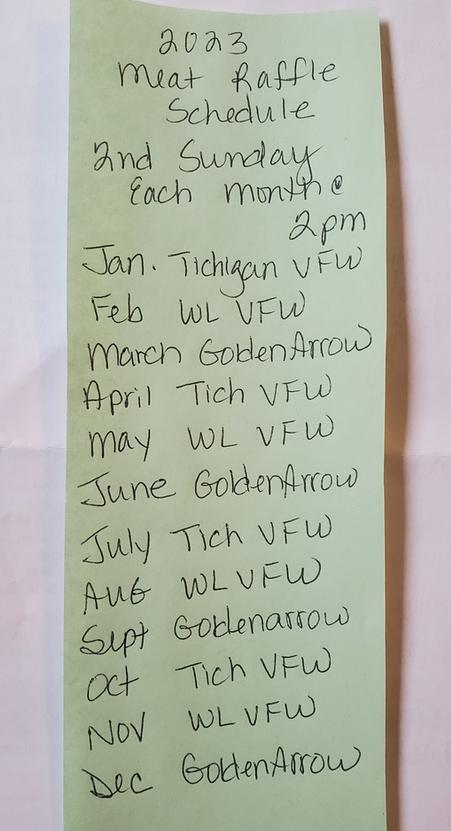 2023
Meat Raffle
Schedule
2nd Sunday
Each month @
2pm
Jan. Tichigan VFW
Feb WL VFW
March GoldenArrow
April Tich VFW
May WL VFW
June GoldenArrow
July Tich VFW
AUG WL VFW
Sept Goldenarrow
Oct Tich VFW
NOV WL VFW
Dec GoldenArrow